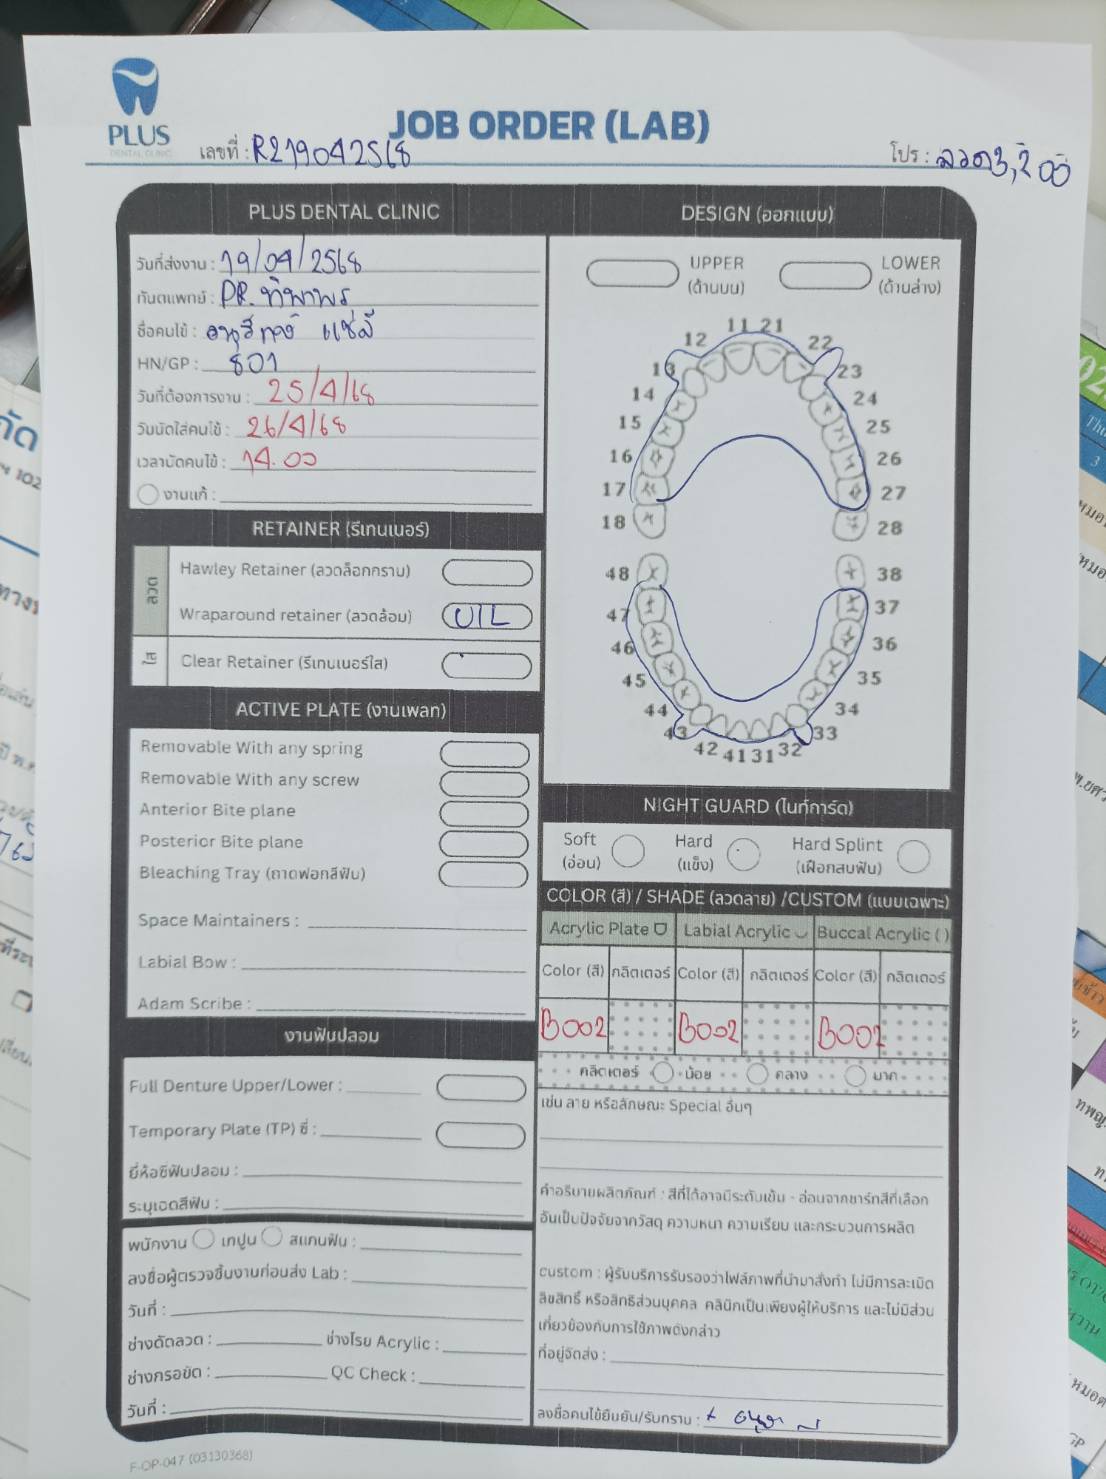 PLUS
DENTAL CLINIC
JOB ORDER (LAB)
เลขที่ : R219042568
โปร : ลวด3,200
PLUS DENTAL CLINIC
วันที่ส่งงาน : 19/04/2568
ทันตแพทย์ : DR. ทิพาพร
ชื่อคนไข้ :
HN/GP : 801
วันที่ต้องการงาน : 25/4/68
วันนัดใส่คนไข้ : 26/4/68
เวลานัดคนไข้ : 14.00
งานแก้ :
RETAINER (รีเทนเนอร์)
ลวด
Hawley Retainer (ลวดล็อกกราม)
Wraparound retainer (ลวดล้อม) U/L
ใส
Clear Retainer (รีเทนเนอร์ใส)
ACTIVE PLATE (งานเพลท)
Removable With any spring
Removable With any screw
Anterior Bite plane
Posterior Bite plane
Bleaching Tray (ถาดฟอกสีฟัน)
Space Maintainers :
Labial Bow :
Adam Scribe :
งานฟันปลอม
Full Denture Upper/Lower :
Temporary Plate (TP) ซี่ :
ยี่ห้อซี่ฟันปลอม :
ระบุเฉดสีฟัน :
พนักงาน เทปูน สแกนฟัน :
ลงชื่อผู้ตรวจชิ้นงานก่อนส่ง Lab :
วันที่ :
ช่างดัดลวด : ช่างโรย Acrylic :
ช่างกรอขัด : QC Check :
วันที่ :
F-OP-047 (03130368)
DESIGN (ออกแบบ)
UPPER
(ด้านบน)
LOWER
(ด้านล่าง)
11 21
12 22
13 23
14 24
15 25
16 26
17 27
18 28
48 38
47 37
46 36
45 35
44 34
43 33
42 41 31 32
NIGHT GUARD (ไนท์การ์ด)
Soft
(อ่อน)
Hard
(แข็ง)
Hard Splint
(เฝือกสบฟัน)
COLOR (สี) / SHADE (ลวดลาย) /CUSTOM (แบบเฉพาะ)
Acrylic Plate Labial Acrylic Buccal Acrylic ( )
Color (สี) กลิตเตอร์ Color (สี) กลิตเตอร์ Color (สี) กลิตเตอร์
B002 B002 B002
กลิตเตอร์ น้อย กลาง มาก
เช่น ลาย หรือลักษณะ Special อื่นๆ
คำอธิบายผลิตภัณฑ์ : สีที่ได้อาจมีระดับเข้ม - อ่อนจากชาร์ทสีที่เลือก
อันเป็นปัจจัยจากวัสดุ ความหนา ความเรียบ และกระบวนการผลิต
custom : ผู้รับบริการรับรองว่าไฟล์ภาพที่นำมาสั่งทำ ไม่มีการละเมิด
ลิขสิทธิ์ หรือสิทธิส่วนบุคคล คลินิกเป็นเพียงผู้ให้บริการ และไม่มีส่วน
เกี่ยวข้องกับการใช้ภาพดังกล่าว
ที่อยู่จัดส่ง :
ลงชื่อคนไข้ยืนยัน/รับทราบ :